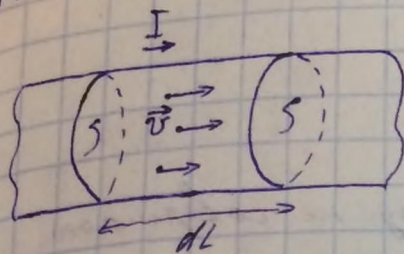 I
S v⃗ S
dL